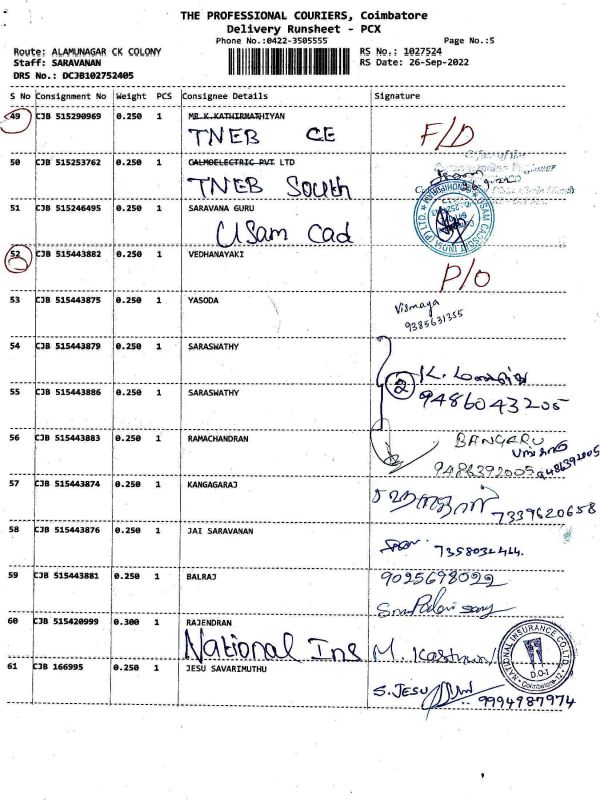 THE PROFESSIONAL COURIERS, Coimbatore
Delivery Runsheet - PCX
Phone No.:0422-3505555 Page No.:5
Route: ALAMUNAGAR CK COLONY RS No.: 1027524
Staff: SARAVANAN RS Date: 26-Sep-2022
DRS No.: DCJB102752405
S No Consignment No Weight PCS Consignee Details Signature
49 CJB 515290969 0.250 1 MR.K.KATHIRMATHIYAN
TNEB CE F/D
50 CJB 515253762 0.250 1 CALMOELECTRIC PVT LTD
TNEB South
51 CJB 515246495 0.250 1 SARAVANA GURU
Usam Cad
52 CJB 515443882 0.250 1 VEDHANAYAKI
P/O
53 CJB 515443875 0.250 1 YASODA Vismaya
9385631355
54 CJB 515443879 0.250 1 SARASWATHY
2 K.
55 CJB 515443886 0.250 1 SARASWATHY 9486043205
56 CJB 515443883 0.250 1 RAMACHANDRAN BANGARU
9486392005 9486392005
57 CJB 515443874 0.250 1 KANGAGARAJ
7339620658
58 CJB 515443876 0.250 1 JAI SARAVANAN
7358032444.
59 CJB 515443881 0.250 1 BALRAJ 9025698022
60 CJB 515420999 0.300 1 RAJENDRAN
National Ins M.
NATIONAL INSURANCE CO.LTD. D.O-1 Coimbatore-12
61 CJB 166995 0.250 1 JESU SAVARIMUTHU
S.JESU 9994987974